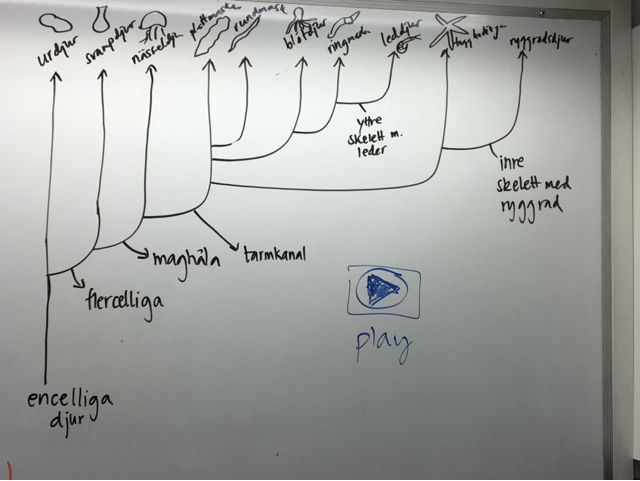 urdjur
svampdjur
nässeldjur
plattmaskar
rundmask
blötdjur
ringmaskar
leddjur
tagghudingar
ryggradsdjur
yttre
skelett m.
leder
inre
skelett med
ryggrad
maghåla
tarmkanal
flercelliga
play
encelliga
djur